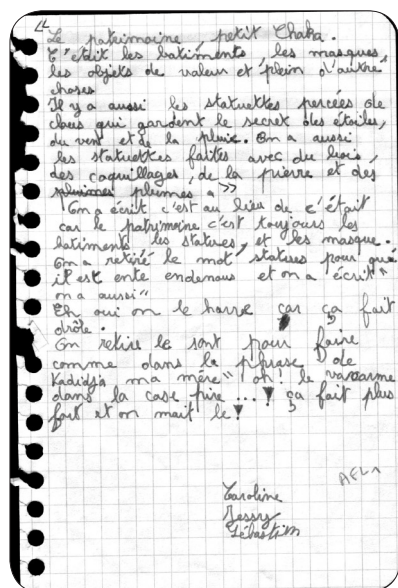 “
Le patrimoine, petit Chaka.
C'était les batiments, les masques,
les objets de valeur et plein d'autre
choses
Il y a aussi les statuettes percées de
clous qui gardent le secret des étoiles,
du vent et de la pluie. On a aussi
les statuettes faites avec du bois,
des coquillages, de la pierre et des
pluimes plumes, a”
On a écrit c'est au lieu de c'était
car le patrimoine c'est toujours les
batiments, les statues, et les masque.
On a retiré le mot statues pour que
il est ente endenous et on a écrit “
on a aussi “
Eh oui on le barre car ça fait
drôle.
On retire le sont pour faire
comme dans la phrase de
Kadidja ma mère “ oh! le vacarme
dans la case pire ...! ça fait plus
fort et on mait le !
AEL1
Caroline
Jessy
Sébastien